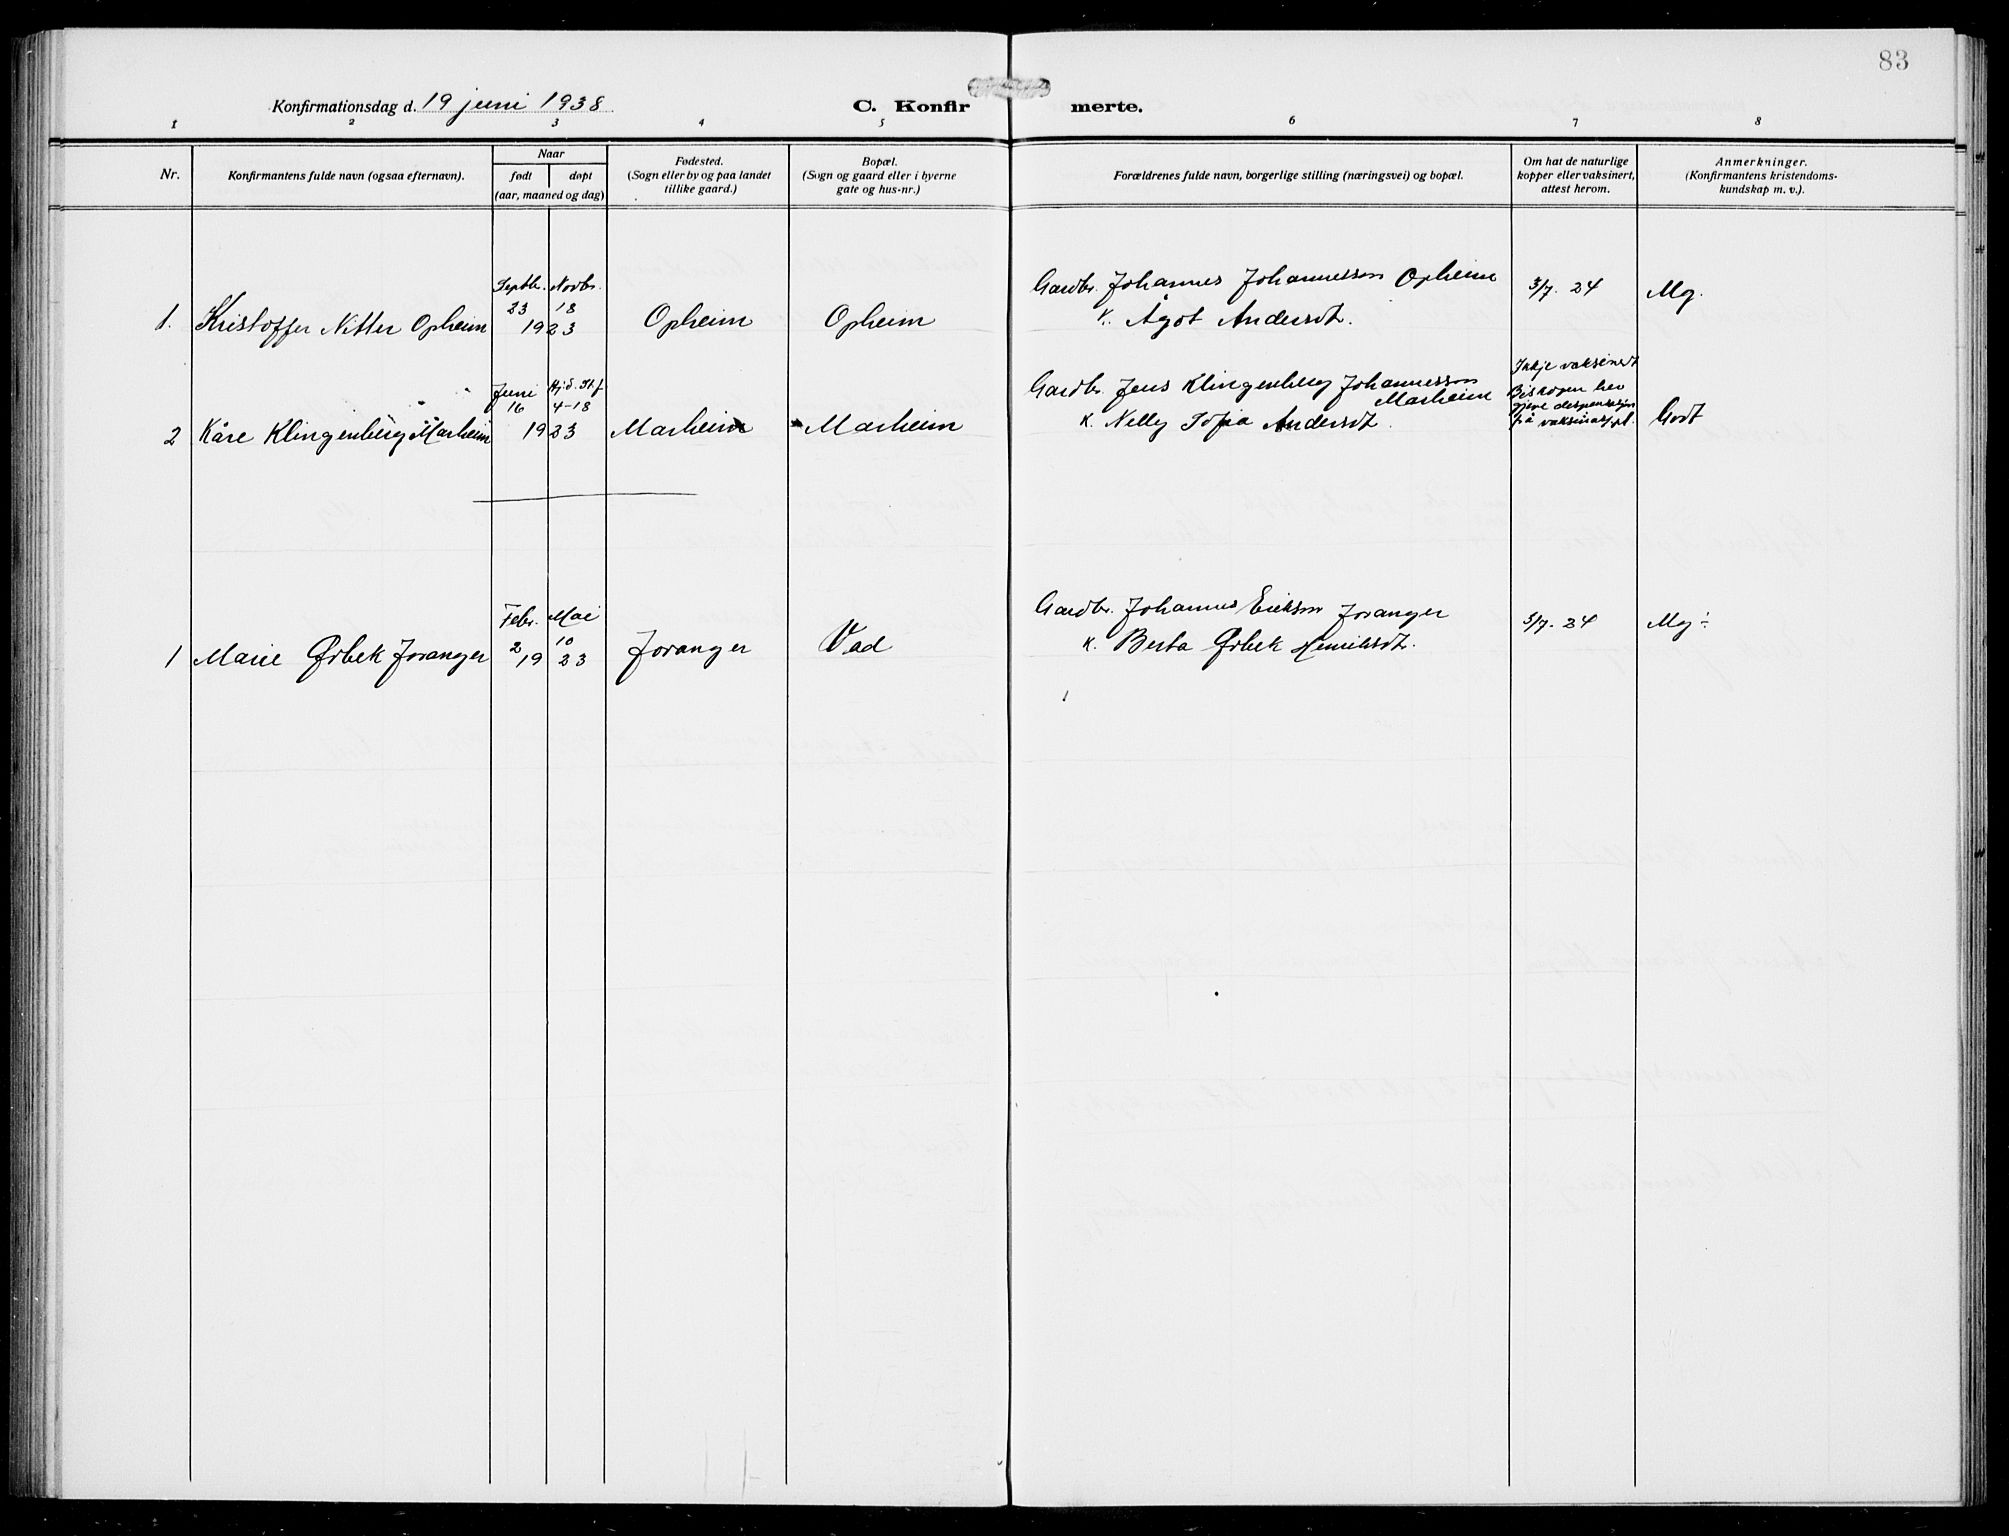 83
Konfirmationsdag d. 19 juni 1938
C. Konfir merte.
1 2 3 4 5 6 7 8
Nr.
Konfirmantens fulde navn (ogsaa efternavn).
Naar
født døpt
(aar, maaned og dag)
Fødested.
(Sogn eller by og paa landet
tillike gaard.)
Bopæl.
(Sogn og gaard eller i byerne
gate og hus-nr.)
Forældrenes fulde navn, borgerlige stilling (næringsvei) og bopæl.
Om hat de naturlige
kopper eller vaksinert,
attest herom.
Anmerkninger.
(Konfirmantens kristendoms-
kundskap m. v.).
Septbr. Novbr.
23 18
1. Kristoffer Nitter Opheim 1923 Opheim Opheim
Gardbr. Johannes Johannesson Opheim 3/7. 24 Mg.
K. Ågot Andersdt.
Juni Hjd. St.f
16 4-18
2 Kåre Klingenberg Marheim 1923 Marheim Marheim
Gardbr. Jens Klingenberg Johannesson
Marheim
K. Nelly Sofia Andersdt.
Ikkje vaksinert
Biskopen hev
gjeve dispensasjon
på vaksinaspl.
Godt
Febr. Mai
2 10
1 Marie Ørbek Joranger 1923 Joranger Vad
Gardbr. Johannes Erikson Joranger 5/7. 24 Mg ÷
K. Berta Ørbek Henriksdt.